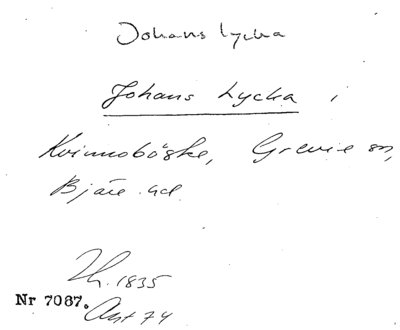 Johans lycka
Johans Lycka i
Kvinnoböske, Grevie sn,
Bjäre hd.
1835
Nr 7087.
Ant 74